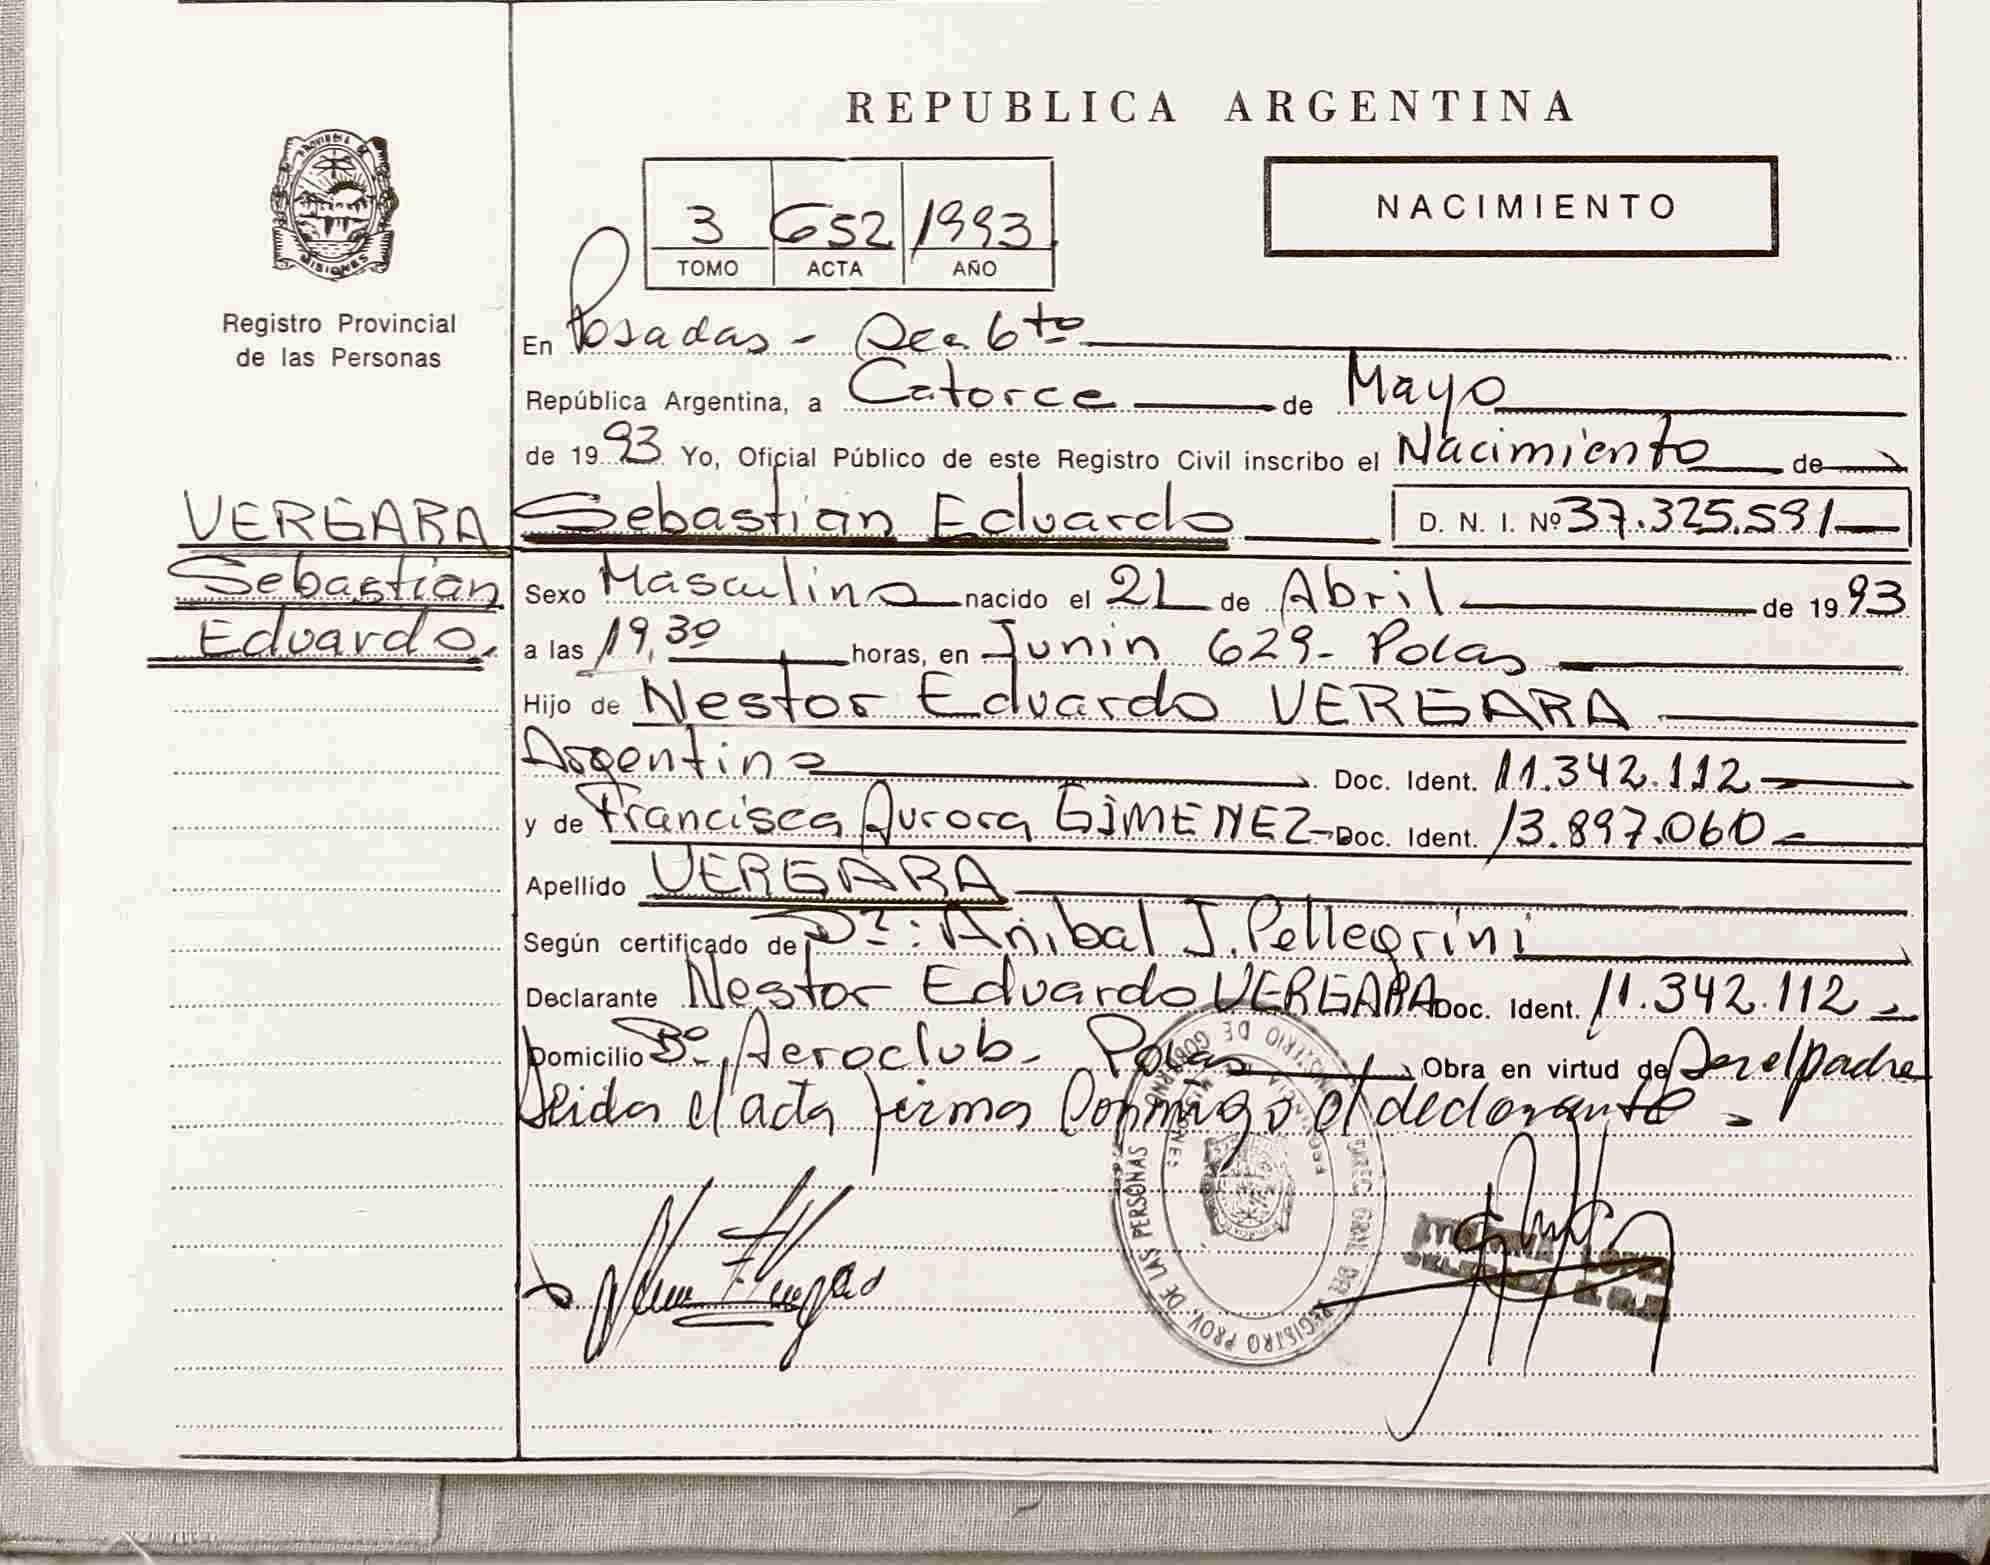 REPUBLICA ARGENTINA
NACIMIENTO
PROVINCIA DE
MISIONES
Registro Provincial
de las Personas
3 652 1993
TOMO ACTA AÑO
En Posadas - Sec 6to
República Argentina, a Catorce de Mayo
de 1993 Yo, Oficial Público de este Registro Civil inscribo el Nacimiento de
VERGARA
Sebastián
Eduardo.
Sebastián Eduardo D. N. I. Nº 37.325.591
Sexo Masculino nacido el 21 de Abril de 1993
a las 19,30 horas, en Junin 629 - Pdas
Hijo de Nestor Eduardo VERGARA
Argentino Doc. Ident. 11.342.112
y de Francisca Aurora GIMENEZ Doc. Ident. 13.897.060
Apellido VERGARA
Según certificado de Dr: Anibal J. Pellegrini
Declarante Nestor Eduardo VERGARA Doc. Ident. 11.342.112
Domicilio Bº Aeroclub - Pdas Obra en virtud de Ser el padre
Leida el acta firma conmigo el declarante.
MINISTERIO DE GOBIERNO
PROVINCIA MISIONES
DIREC. GRAL. DEL REGISTRO PROV. DE LAS PERSONAS
LOPEZ